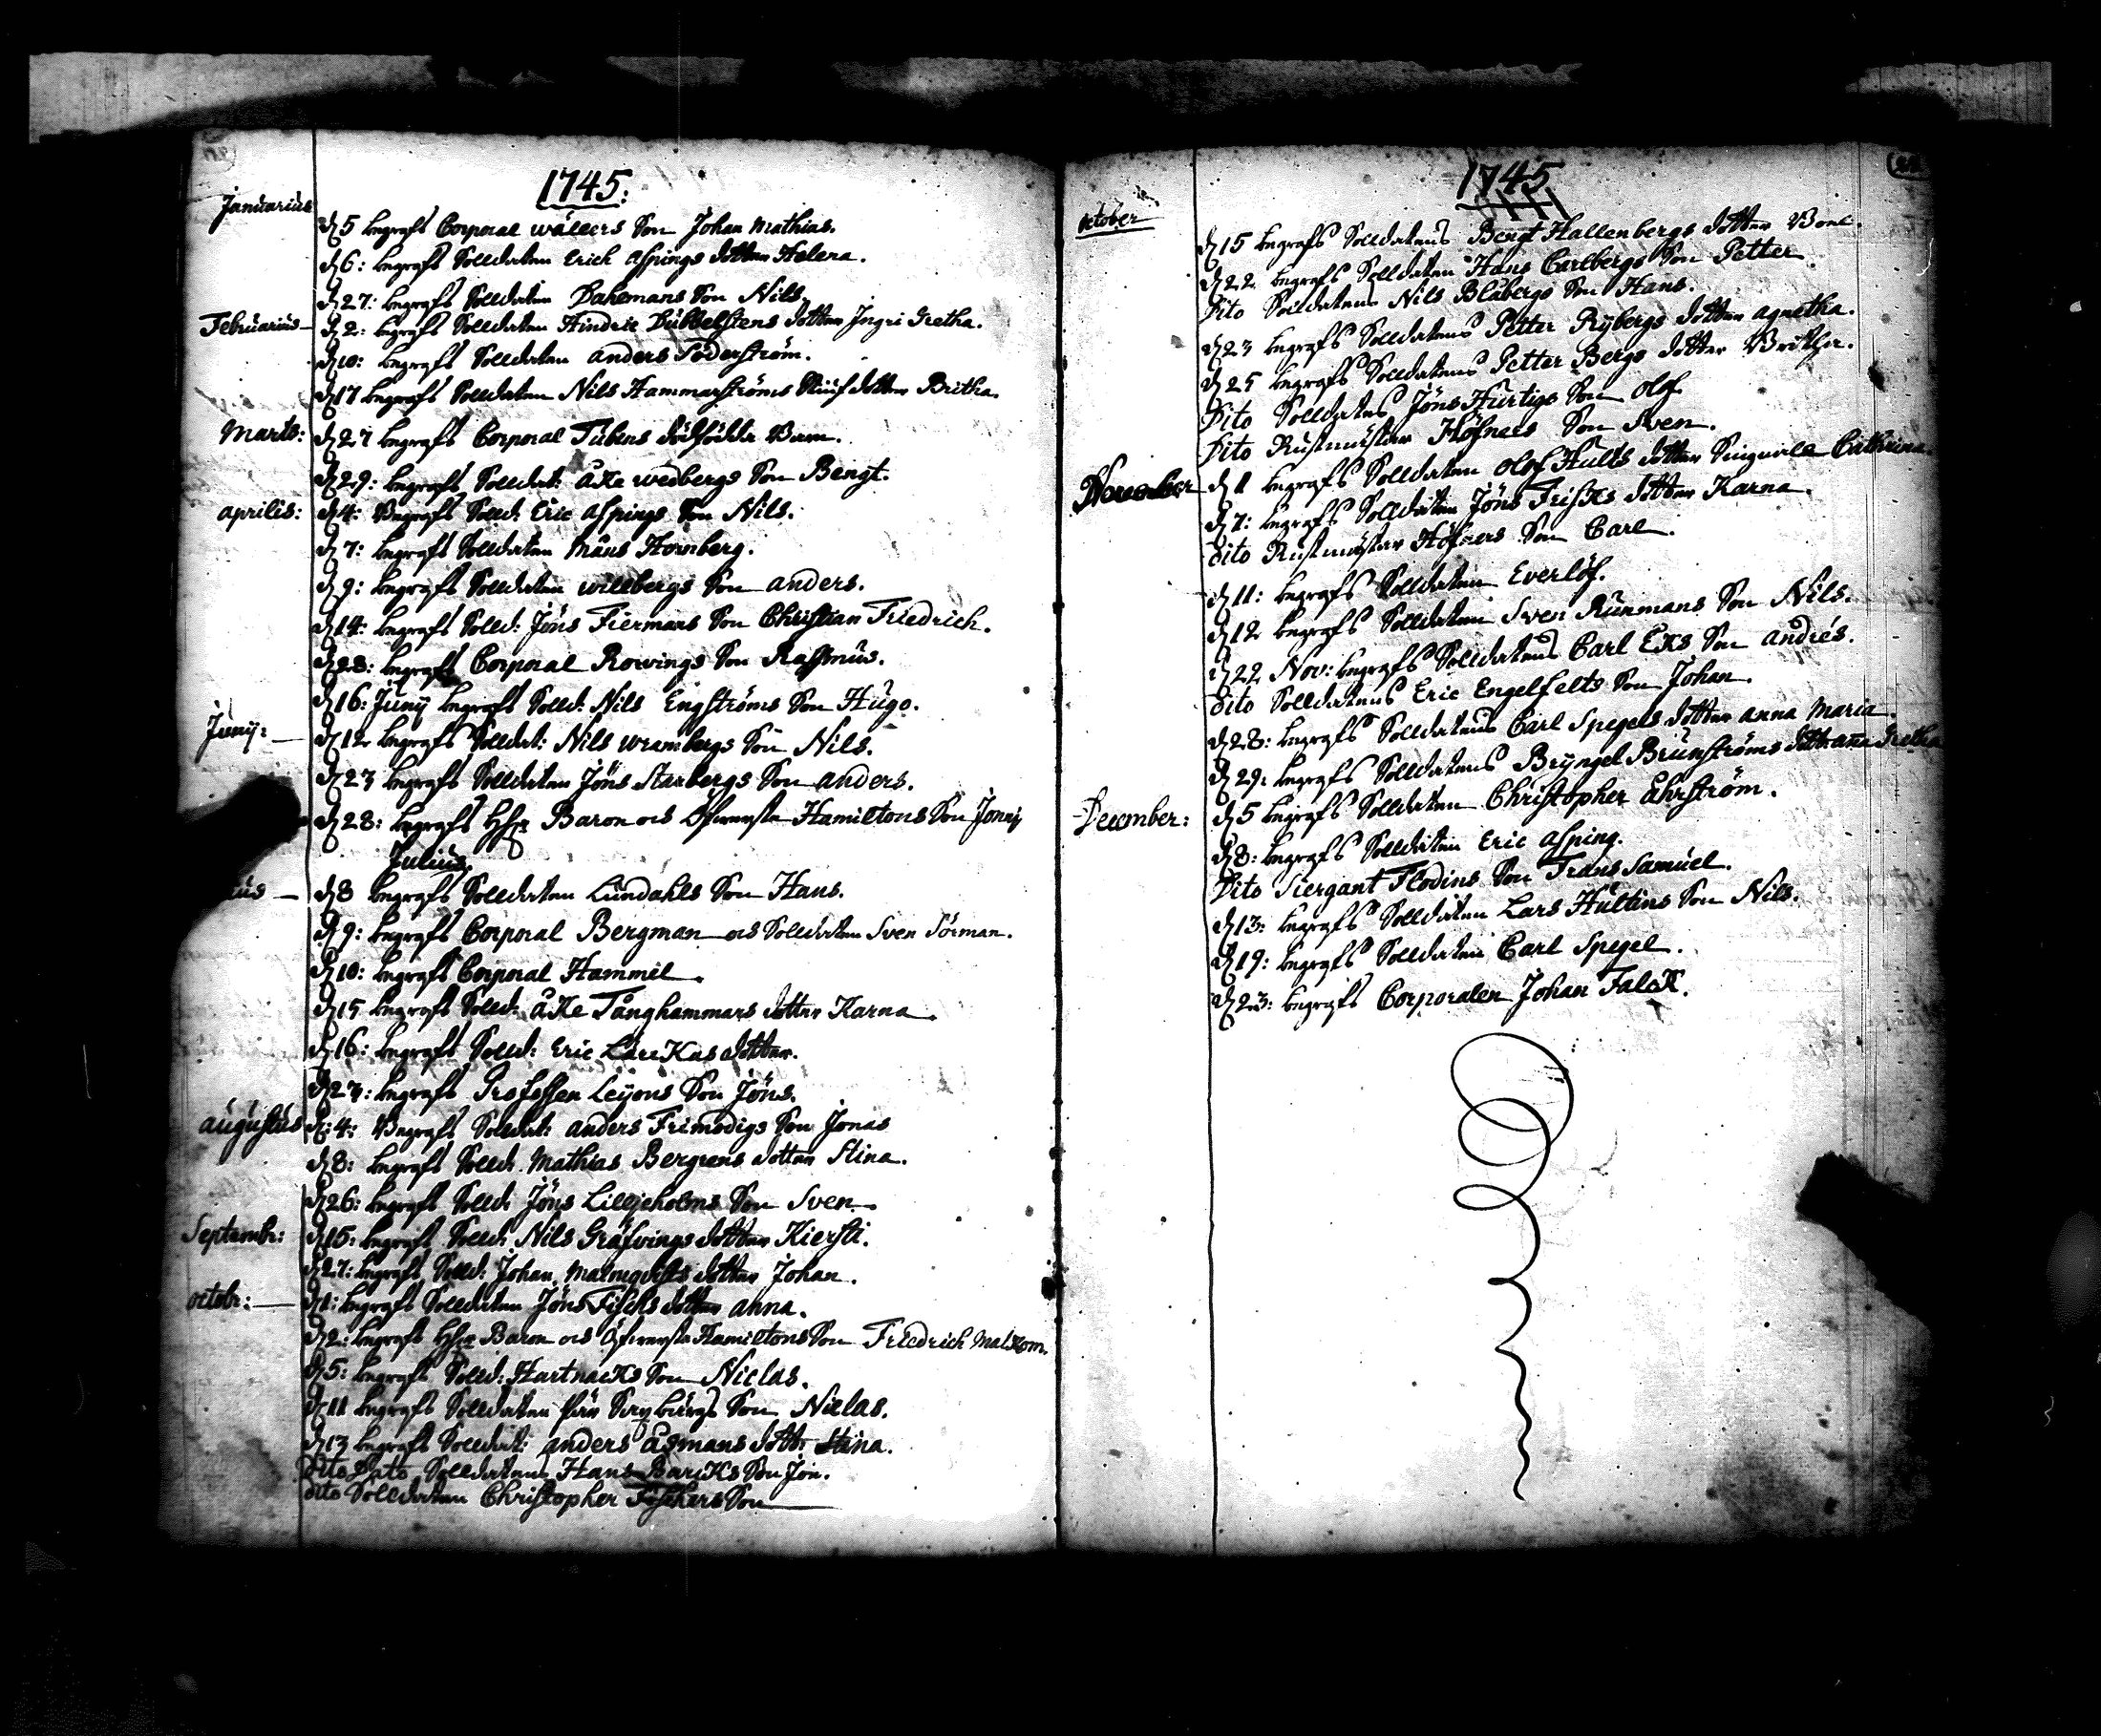 1745:
Januarius
d 5 begrafs Corporal wällers Son Johan Mathias.
d 6: begrafs Solldaten Erich Aspings dotter Helena.
d 27: begrafs Solldaten Dahlmans Son Nils
Februarius – d 2: begrafs Solldaten Hindric Dubbelstens dotter Ingri Gretha.
d 10: begrafs Solldaten anders Söderström.
d 17 begrafs Solldaten Nils Hammarströms dotter Britha.
Marts: d 27 begrafs Corporal Tubens dödfödda Barn.
d 29: begrafs Solldat: åke wedbergs Son Bengt.
aprilis: d 4: Begrafs Solld: Eric aspings Son Nils.
d 7: begrafs Solldaten Måns Hornberg.
d 9: begrafs Solldaten willbergs Son anders.
d 14: begrafs Solld: Jöns Fiermans Son Christian Friedrich.
d 28: begrafs Corporal Rowings Son Rasmus.
d 16: Juny begrafs Solld: Nils Engströms Son Hugo.
Juny: – d 12 begrafs Solldat: Nils wrambergs Son Nils.
d 23 begrafs Solldaten Jöns Starbergs Son anders.
d 28: begrafs HHr Baron och Öfwersta Hamiltons Son Jonny
Julius.
ius – d 8 begrafs Solldaten Lundahls Son Hans.
d 9: begrafs Corporal Bergman och Solldaten Sven Sörman.
d 10: begrafs Corporal Hammel.
d 15 begrafs Solld: åke Tånghammars dotter Karna.
d 16: begrafs Solld: Eric Lärckas dotter.
d 23: begrafs Profossen Leyons Son Jöns.
augustus d: 4: Begrafs Soldat: anders Frimodigs Son Jonas
d 8: begrafs Solld: Mathias Bergrens dotter Stina.
d 26: begrafs Solld: Jöns Lilljeholms Son Sven.
Septembr: d 15: begrafs Solld: Nils Gräfvings dotter Kiersti.
d 27: begrafs Solld: Johan Malmqvists dotter Johan.
octobr: – d 1: begrafs Solldaten Jöns Fischs dotter anna.
d 2: begrafs HHr Baron och Öfwersta Hamiltons Son Friedrich Malkom.
d 5: begrafs Solld: Hartnacks Son Niclas.
d 11 begrafs Solldaten Son Niclas.
d 13 begrafs Solldat: anders Åsmans dottr Stina.
Dito Dato Solldatens Hans Baricks Son Jön.
Dito Solldaten Christopher Fischers Son
1745
october
d 15 begrafs Solldatens Bengt Hallenbergs dotter Boel.
d 22 begrafs Solldaten Hans Carlbergs Son Petter
Dito Solldatens Nils Blåbergs Son Hans.
d 23 begrafs Solldatens Petter Rybergs dotter agnetha.
d 25 begrafs Solldatens Petter Bergs dotter Britha.
Dito Solldatens Jöns Hurtigs Son Olof.
Dito Rustmästar Höfners Son Sven.
November d 1 begrafs Solldaten Olof Hults dotter Cathrina.
d 7: begrafs Solldaten Jöns Frisks dotter Karna.
Dito Rustmästar Höfners Son Carl.
d 11: begrafs Solldaten Everlöf.
d 12 begrafs Solldaten Sven Runmans Son Nils.
d 22 Nov: begrafs Solldatens Carl Eks Son andrés.
Dito Solldatens Eric Engelfelts Son Johan.
d 28: begrafs Solldatens Carl Spegels dotter anna Maria.
d 29: begrafs Solldatens Bryngel Brunströms dottr anna Gretha
December: d 5 begrafs Solldaten Christopher åhrström.
d 8: begrafs Solldaten Eric asping.
Dito Siergant Flodins Son Frans Samuel.
d 13: begrafs Solldaten Lars Hultins Son Nils.
d 19: begrafs Solldaten Carl Spegel.
d 23: begrafs Corporalen Johan Falck.